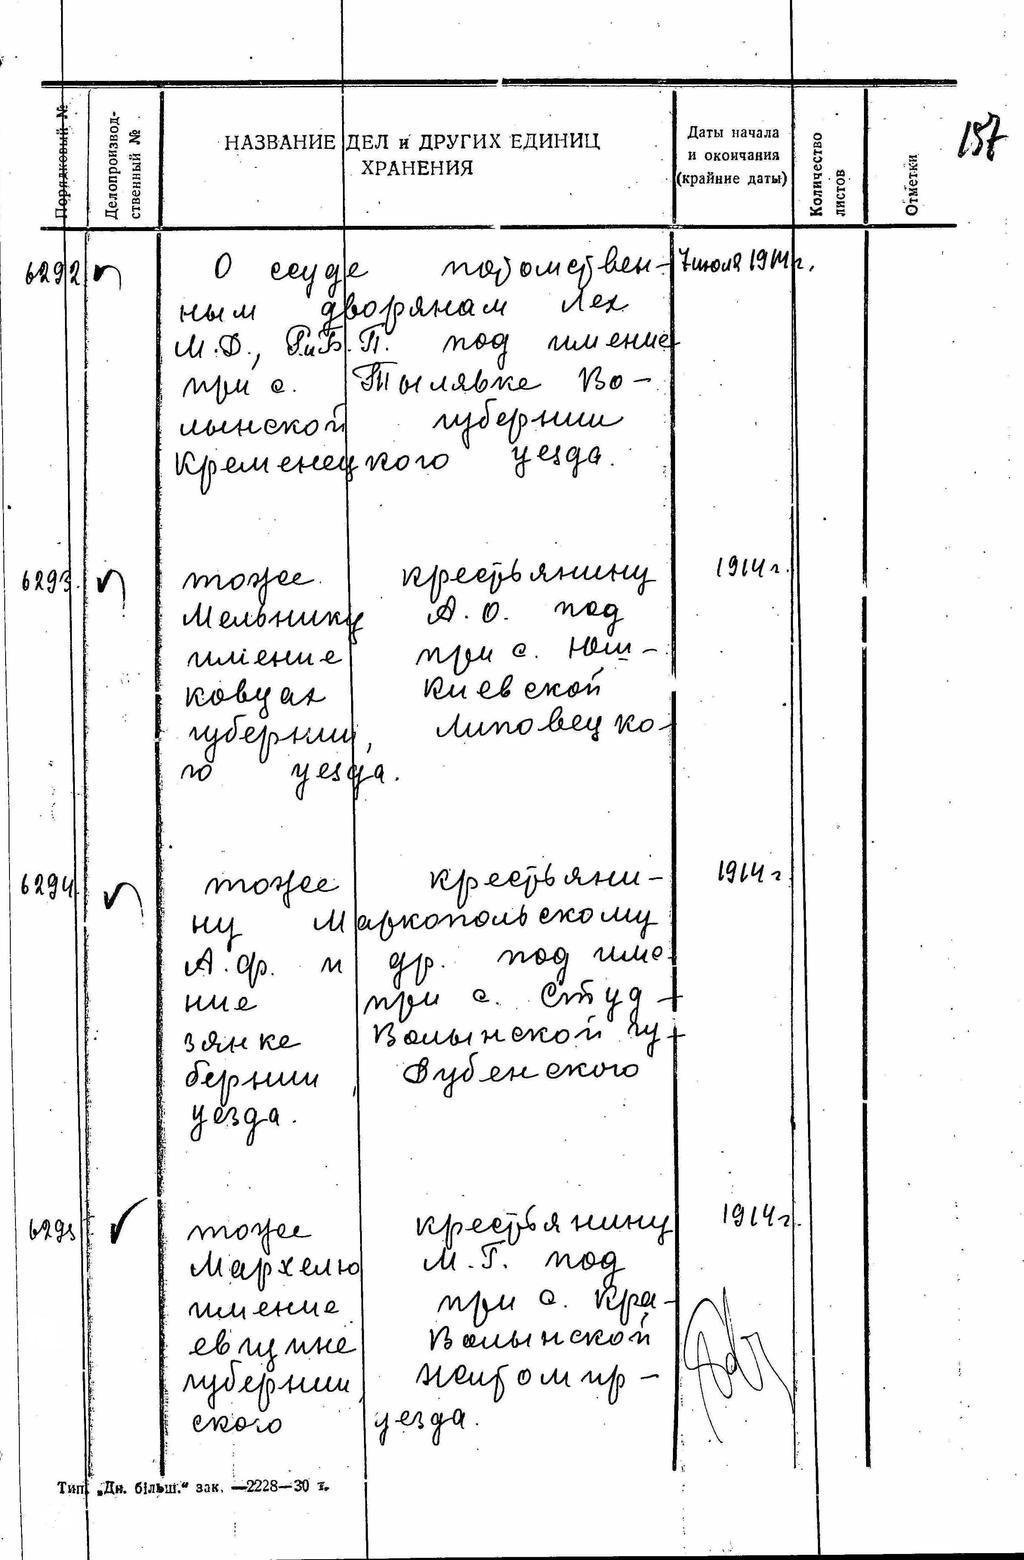 157
Порядковый №
Делопроизвод-
ственный №
НАЗВАНИЕ ДЕЛ и ДРУГИХ ЕДИНИЦ
ХРАНЕНИЯ
Даты начала
и окончания
(крайние даты)
Количество
листов
Отметки
6292 О ссуде потомствен- 7 июля 1914 г.
ным дворянам Лех
М.Д., Р.и Б.П. под имение
при с. Тылявке Во-
лынской губернии
Кременецкого уезда.
6293. тоже крестьянину 1914 г.
Мельнику А.О. под
имение при с. Юш-
ковцах Киевской
губернии, Липовецко-
го уезда.
6294 тоже крестьяни- 1914 г.
ну Маркопольскому
А.Ф. и др. под име
ние при с. Студ-
зянке Волынской гу-
бернии, Дубенского
уезда.
6295 тоже крестьянину 1914 г.
Мархелю М.Г. под
имение при с. Кра-
евщине Волынской
губернии, Житомир-
ского уезда.
Тип. „Дн. більш.“ зак. —2228—30 т.